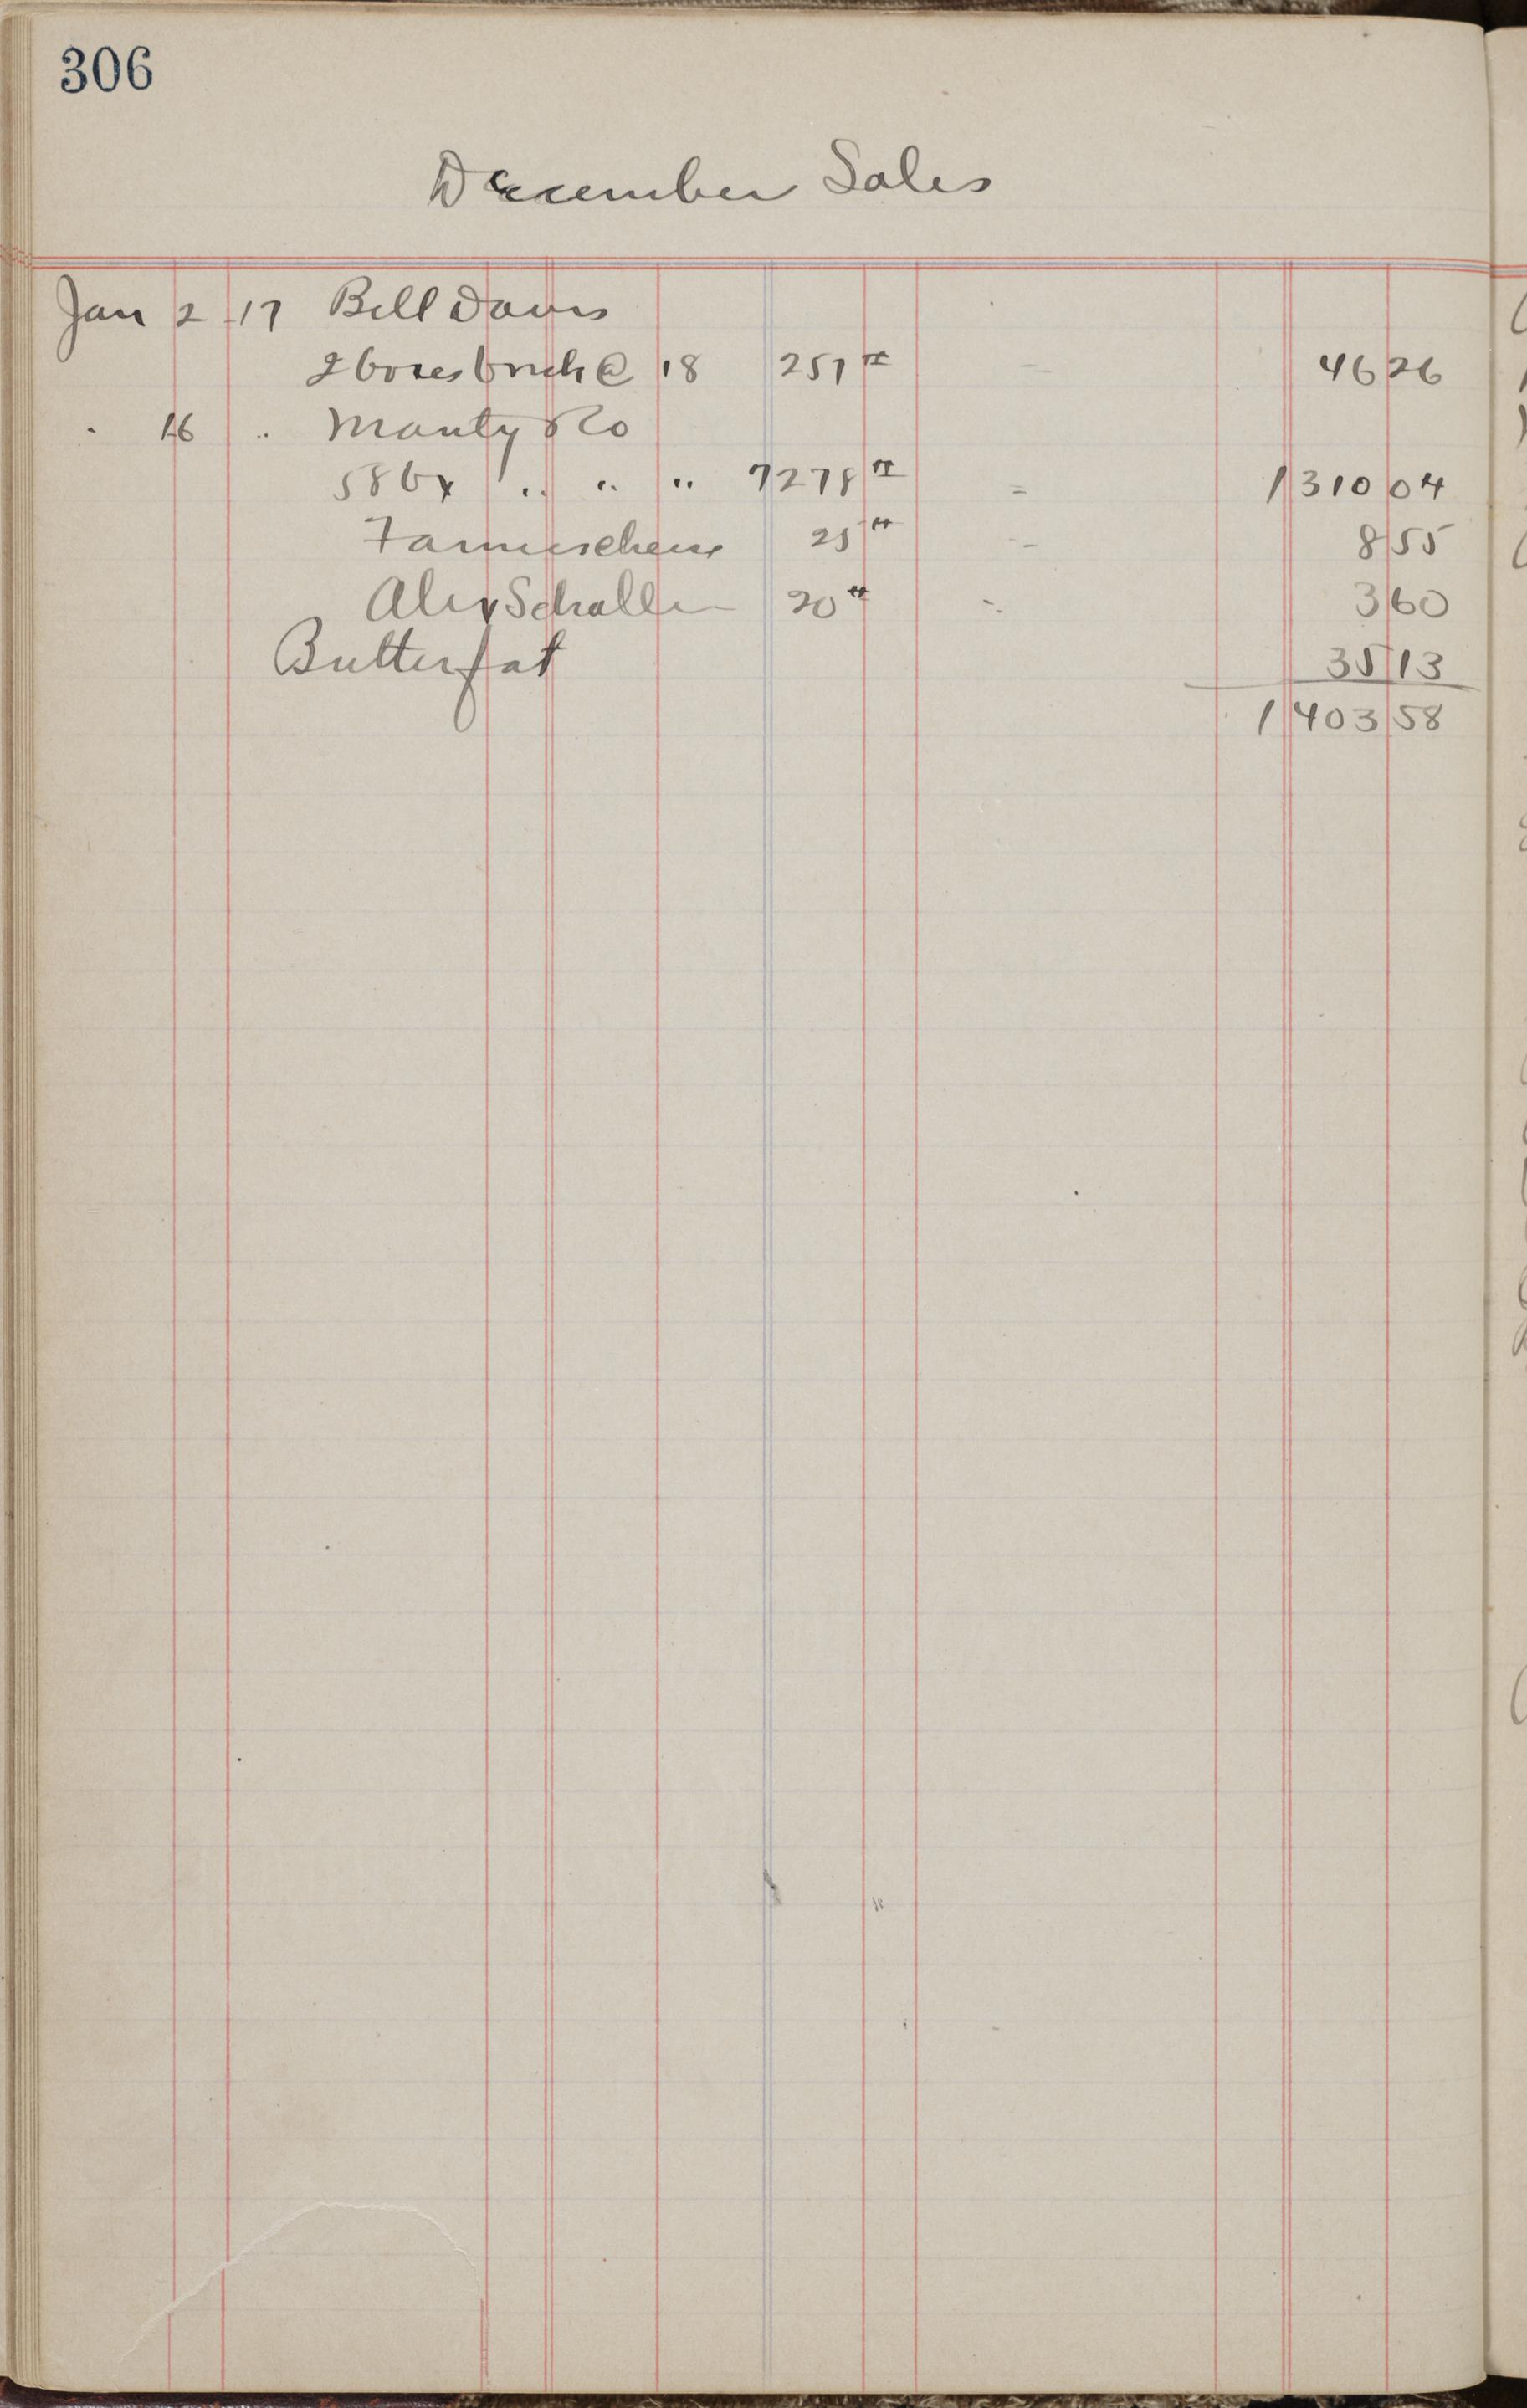 306
December Sales
Jan 2 17 Bell Davis
2 boxes brick @ 18 257 # 46 26
" 16 " Marty Co
58 bx " " " 7278 # = 1310 04
25 # - 8 55
Alex Schaller 20 # = 3 60
Butterfat 35 13
1403 58